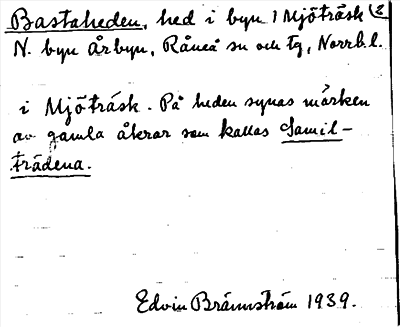 Bastaheden, hed i byn 1 Mjöträsk
N. byn Årbyn, Råneå sn och tg, Norrb. l.
i Mjöträsk. På heden synas märken
av gamla åkrar som kallas Samil-
trädena.
Edvin Brännström 1939.